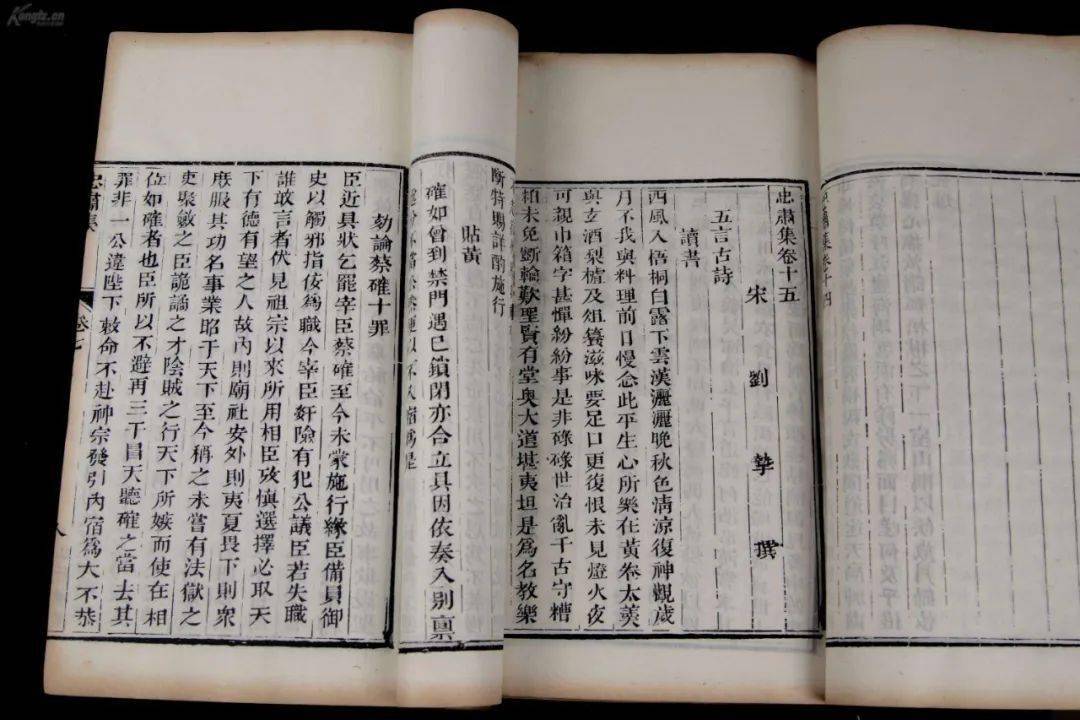 Kongfz.cn
忠肅集卷十五
宋 劉摯 撰
五言古詩
讀書
西風入梧桐白露下雲漢灑灑晚秋色清涼復神觀歲
月不我與料理前日慢念此平生心所樂在黃卷太羹
與玄酒梨樝及俎養滋味要足口更復恨未見燈火夜
可親巾箱字甚憚紛紛事是非碌碌世治亂千古守糟
粕未免斲輪歎聖賢有堂奥大道堪夷坦是爲名教樂
斷特賜詳酌施行
貼黃
確如曾到禁門遇巳鎖閉亦合立具因依奏入别禀
劾論蔡確十罪
臣近具狀乞罷宰臣蔡確至今未蒙施行緣臣備員御
史以觸邪指佞爲職今宰臣姦險有犯公議臣若失職
誰敢言者伏見祖宗以來所用相臣攷愼選擇必取天
下有德有望之人故内則廟社安外則夷夏畏下則衆
庶服其功名事業昭于天下至今稱之未嘗有法獄之
吏聚斂之臣詭譎之才陰賊之行天下所嫉而使在相
位如確者也臣所以不避再三干冒天聽確之當去其
罪非一公違陛下敕命不赴神宗發引内宿爲大不恭
忠肅集
卷七
八